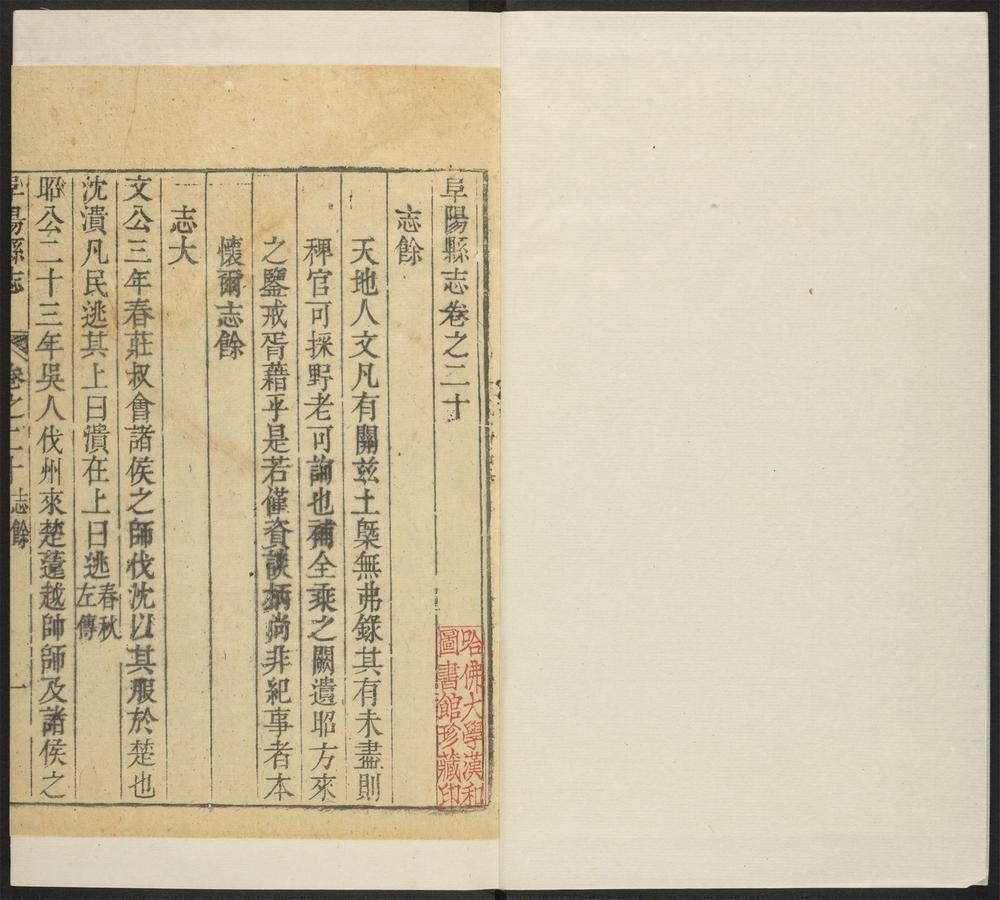 阜陽縣志卷之二十
志餘
天地人文凡有關兹土槩無弗錄其有未盡則
稗官可採野老可詢也補全乘之闕遺昭方來
之鑒戒胥藉乎是若僅資談柄尚非紀事者本
懷爾志餘
志大
文公三年春莊叔會諸侯之師伐沈以其服於楚也
沈潰凡民逃其上曰潰在上曰逃春秋左傳
昭公二十三年吳人伐州來楚薳越帥師及諸侯之
阜陽縣志 卷之二十 志餘 一
哈佛大學漢和
圖書館珍藏印